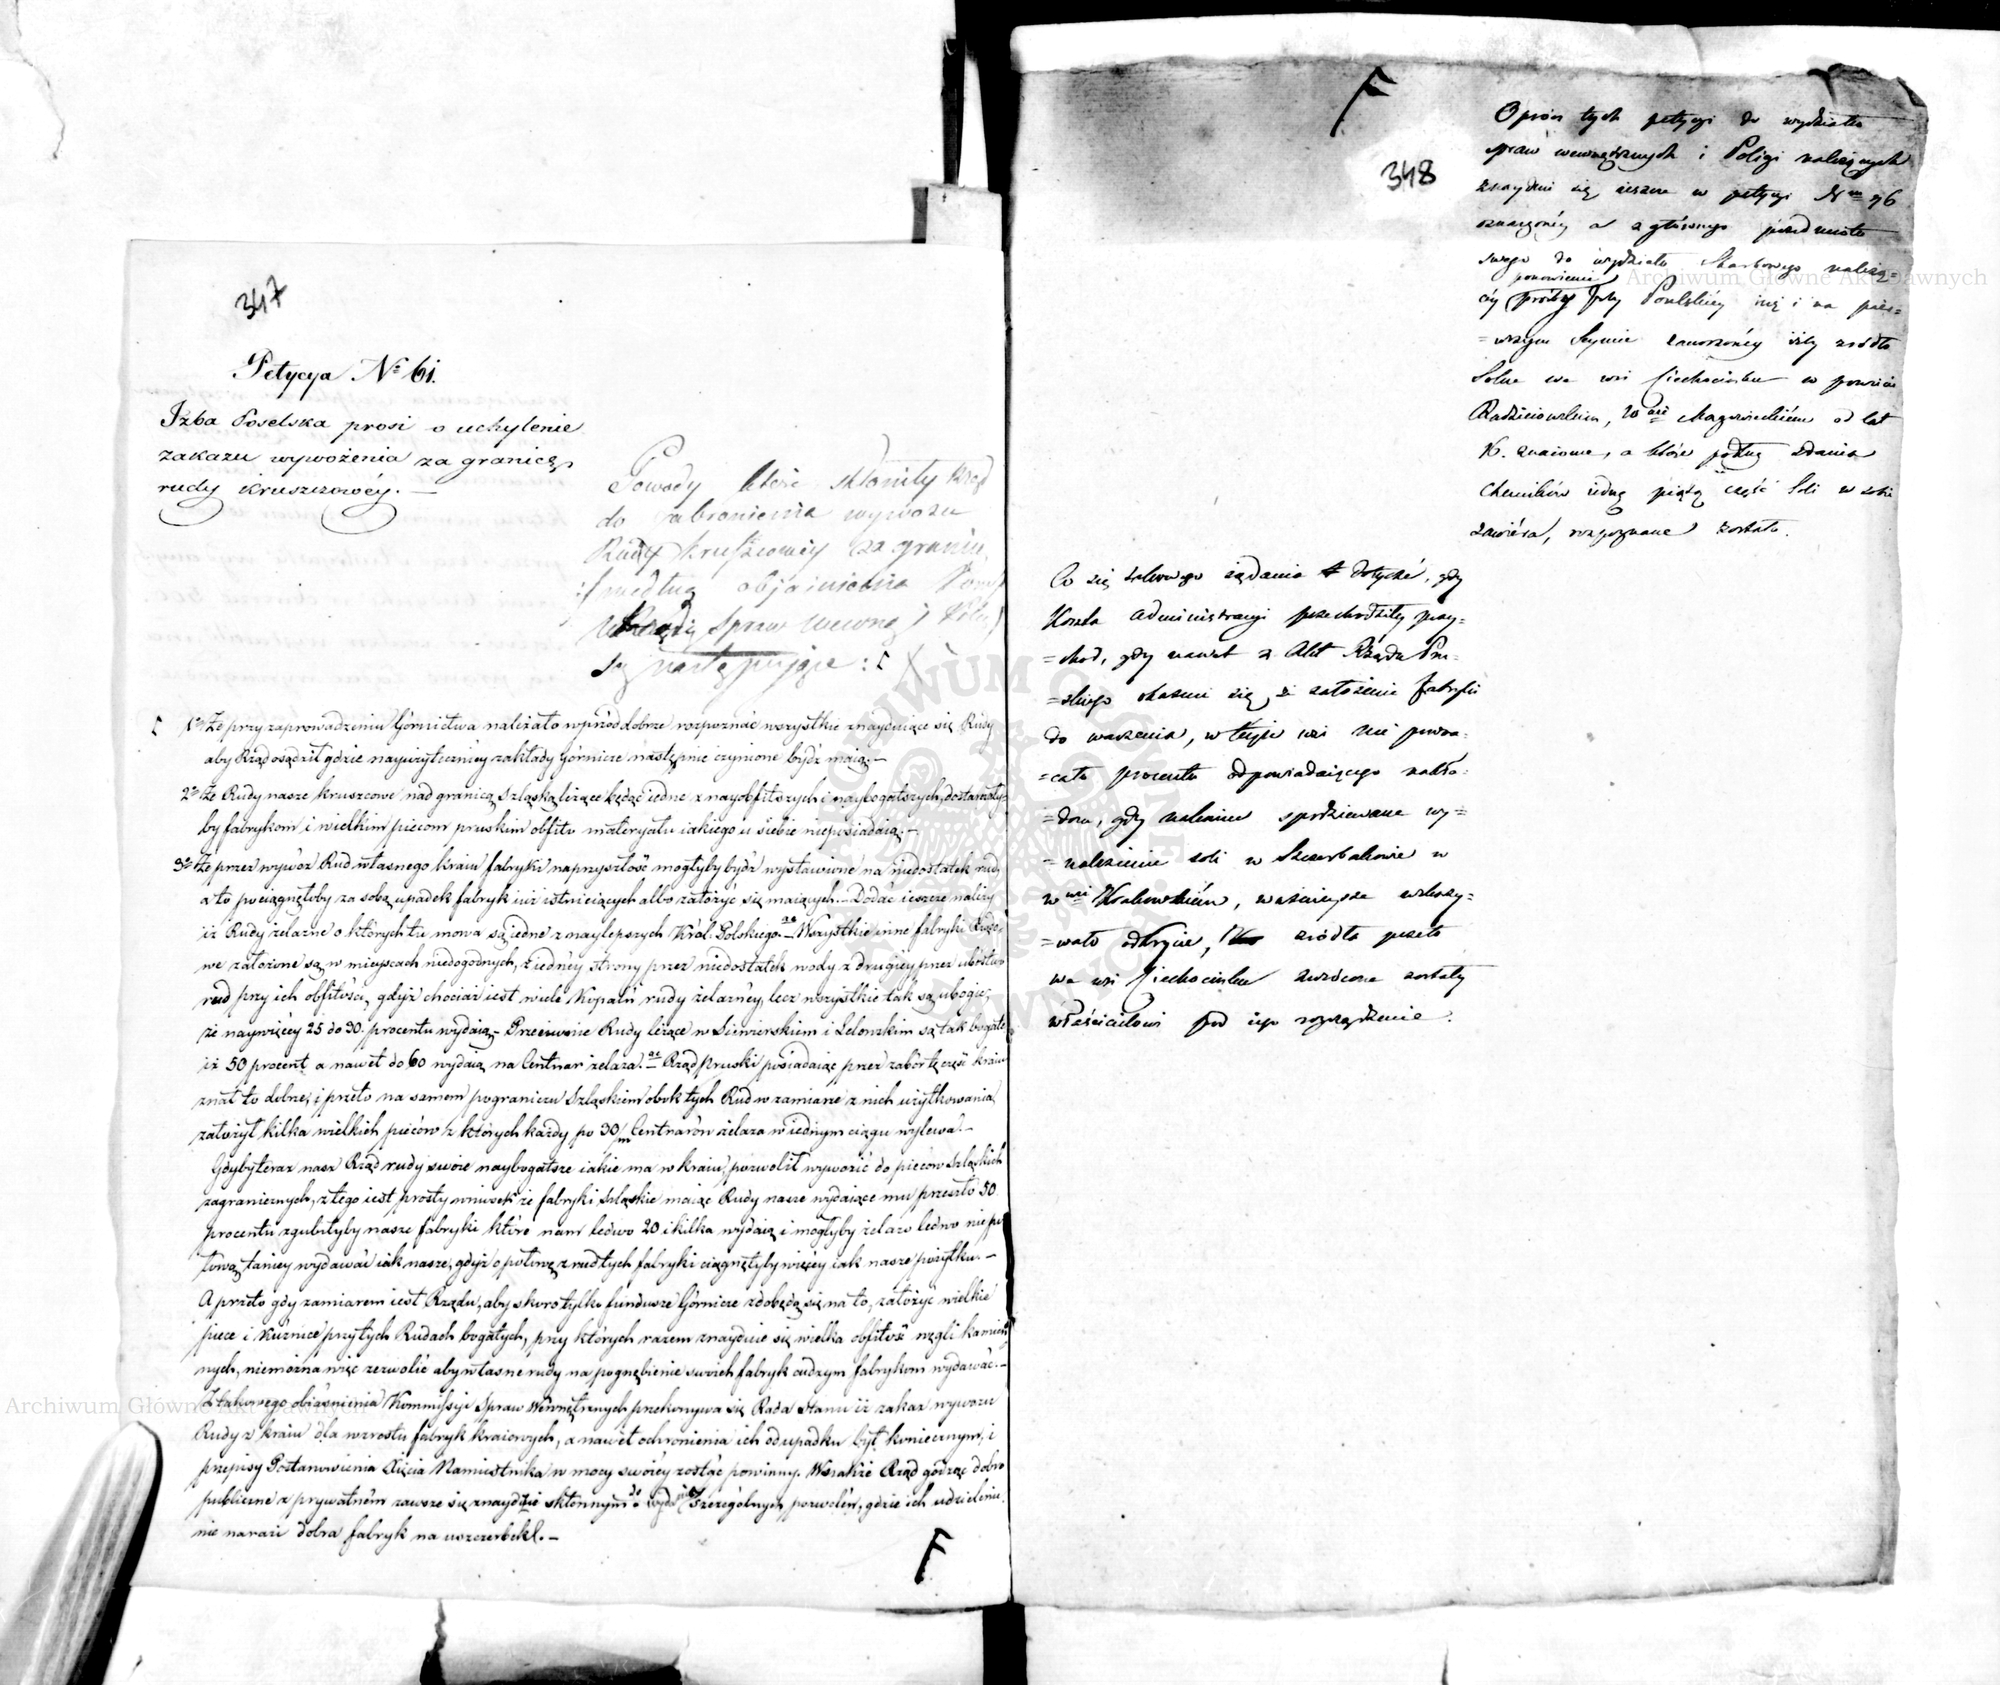 347
Petycya Nº 61.
Izba Poselska prosi o uchylenie
zakazu wywożenia za granicę
rudy kruszcowéy. —
Powody które skłoniły Rząd
do zabronienia wywozu
Rudy kruszcowéy za granicę
według objaśnienia
Spraw Wewnę
są następujące :
1º Że przy zaprowadzeniu Górnictwa należało wprzód dobrze rozpoznać wszystkie znayduiące się Rudy
aby Rząd osądził gdzie nayużyteczniéy zakłady górnicze następnie czynione bydź maią. —
2º Że Rudy nasze kruszcowe nad granicą Szląską leżące będąc iedne z nayobfitszych i naybogatszych, dostarczały-
by fabrykom i wielkim piecom pruskim obfitu materyału iakiego u siebie nieposiadaią. —
3º Że przez wywóz Rud własnego kraiu fabryki naprzyszłość mogłyby bydź wystawione na niedostatek rudy
a to pociągnęłoby za sobą upadek fabryk iuż istnieiących albo założyć się maiących. — Dodać ieszcze należy
iż Rudy żelazne o których tu mowa są iedne z naylepszych Król. Polskiego. — Wszystkie inne fabryki Rządo
we założone są w mieyscach niedogodnych, z iednéy strony przez niedostatek wody z drugiéy przez ubóstwo
rud przy ich obfitości, gdyż chociaż iest wiele Kopalń rudy żelaznéy, lecz wszystkie tak są ubogie,
że naywięcéy 25 do 30. procentu wydaią — Przeciwnie Rudy leżące w Siewierskiem i Lelowskim są tak bogate
iż 50 procent a nawet do 60 wydaią na Centnar żelaza. — Rząd pruski posiadaiąc przez zabór tę część kraiu
znał to dobrze, i przeto na samem pograniczu Szląskiem obok tych Rud w zamiarze z nich użytkowania
założył kilka wielkich pieców z których każdy po 30/m Centnarów żelaza w iednym ciągu wylewa. —
Gdyby teraz nasz Rząd rudy swoie naybogatsze iakie ma w kraiu, pozwolił wywozić do pieców Szląskich
zagranicznych, z tego iest prosty wniosek że fabryki szląskie maiąc Rudy nasze wydaiące mu przeszło 50
procentu zgubiłyby nasze fabryki które nam ledwo 20 i kilka wydaią i mogłyby żelazo ledwo nie po
łową taniey wydawać iak nasze, gdyż o połowę z rud tych fabryki ciągnęłyby więcéy iak nasze pożytku. —
A przeto gdy zamiarem iest Rządu, aby skoro tylko fundusze Górnicze zdobędą się na to, założyć wielkie
piece i kuźnice przy tych Rudach bogatych, przy których razem znayduie się wielka obfitość węgli kamien
nych, niemożna więc zezwolić aby własne rudy na pognębienie swoich fabryk cudzym fabrykom wydawać. —
Z takowego obiaśnienia Kommissyi Spraw Wewnętrznych przekonywa się Rada Stanu iż zakaz wywozu
Rudy z kraiu dla wzrostu fabryk kraiowych, a nawet ochronienia ich od upadku był koniecznym, i
przepisy Postanowienia Xięcia Namiestnika w mocy swoiéy zostać powinny. Wszakże Rząd godząc dobro
publiczne z prywatném zawsze się znaydzie skłonnym do szczególnych pozwoleń, gdzie ich udzielenie
nie narazi dobra fabryk na uszczerbek. —
F
F
348
Oprócz tych petycyi do wydziału
spraw wewnętrznych i Policyi należących
znayduie się ieszcze w petycyi Nrm 76
oznaczonéy a z głównego przedmiotu
swego do wydziału Skarbowego należą=
ponowienie
céy prośby Izby Poselskiéy iuż i na pier=
=wszym Seymie zanoszonéy iżby źródło
Solne we wsi Ciechocinku w powiecie
Radzieiowskim, Wdzie Mazowieckiém od lat
K. znaiome, a które podług zdania
Chemików iedną piątą część Soli w sobie
zawiéra, rozpoznane zostało.
Co się żądania dotycze, gdy
Koszta administracyi przechodziły przy=
=chód, gdy nawet z Akt Rządu Pru=
=skiego okazuie się, że założenie fabryki
do warzenia, w teyże wsi nie powra=
=cało procentu odpowiadaiącego nakła=
=dom, gdy nakoniec spodziewane wy=
=nalezienie soli w Szczerbakowie w
Wwie Krakowskiém, ważnieysze wskazy=
=wało odkrycie, źródła przeto
we wsi Ciechocinku zwrócone zostały
właścicielowi pod iego rozrządzenie.
Archiwum Główne Akt Dawnych
Archiwum Główne Akt Dawnych